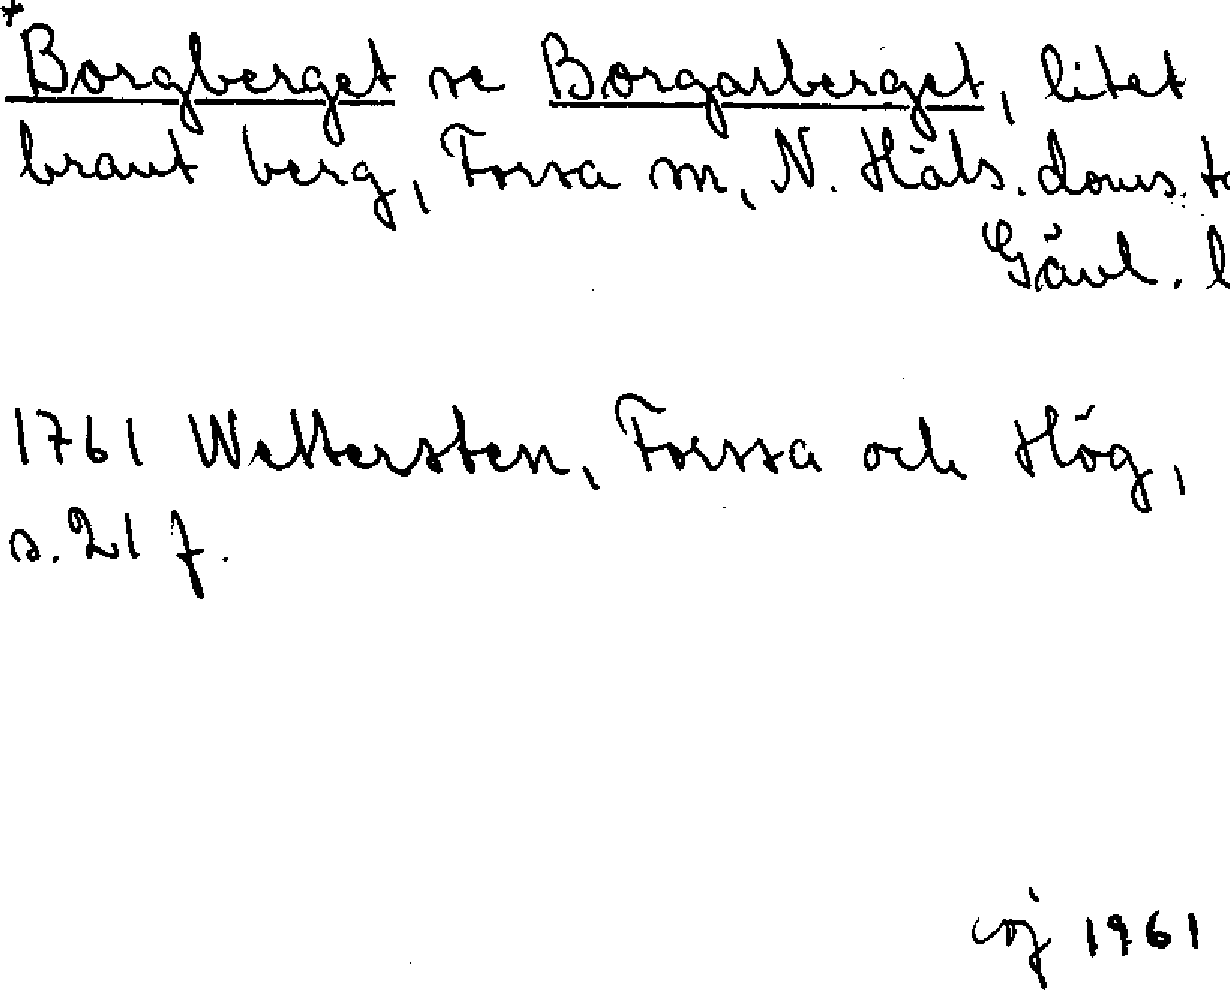 *Borgberget se Borgarberget, litet
brant berg, Forsa sn, N. Häls. doms.
Gävl. l
1761 Wettersten, Forssa och Hög,
s. 21 f.
1961